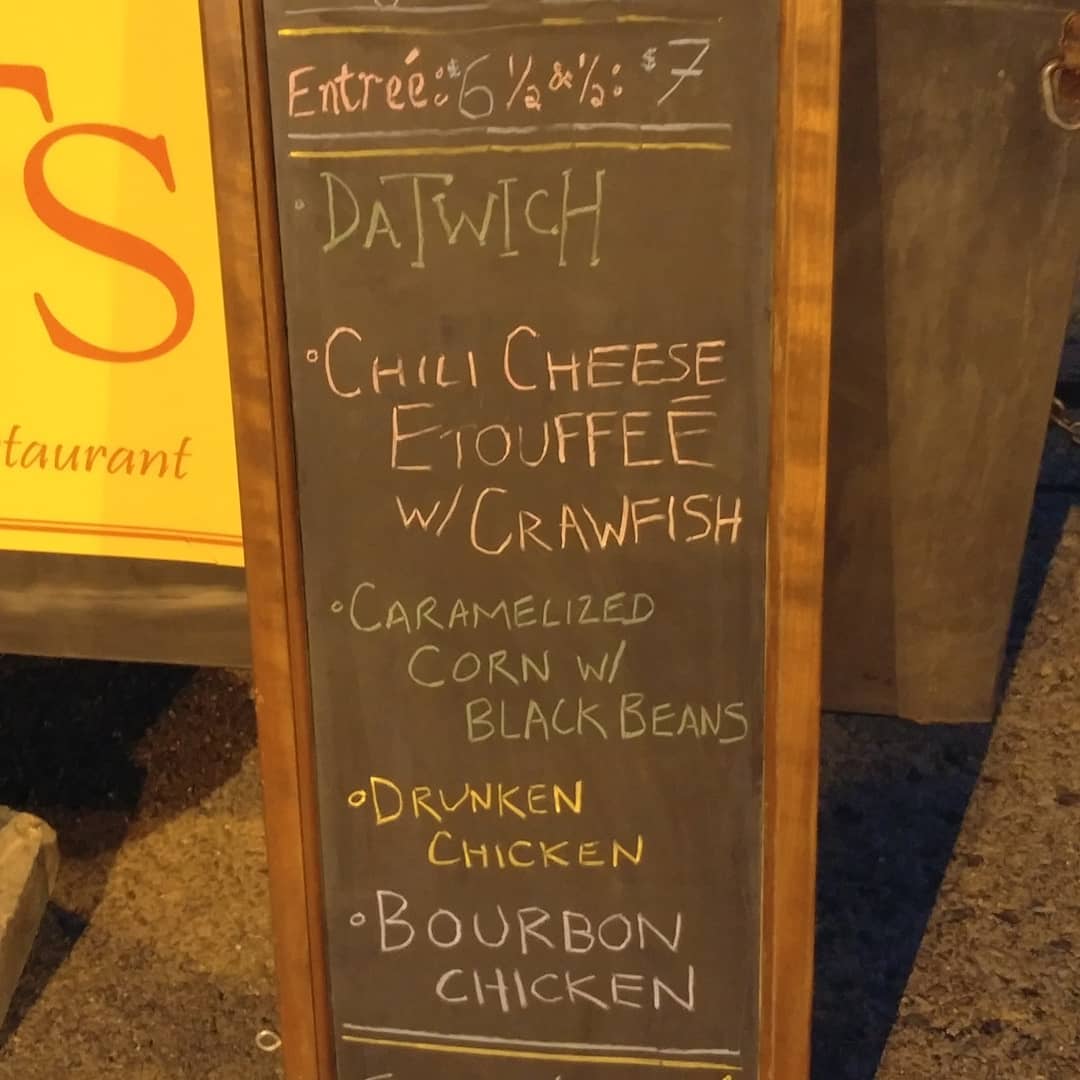 Entreé: $6 ½ & ½: $7
• DATWICH
• CHILI CHEESE
ETOUFFEÉ
W/ CRAWFISH
• CARAMELIZED
CORN W/
BLACK BEANS
• DRUNKEN
CHICKEN
• BOURBON
CHICKEN
TS
taurant